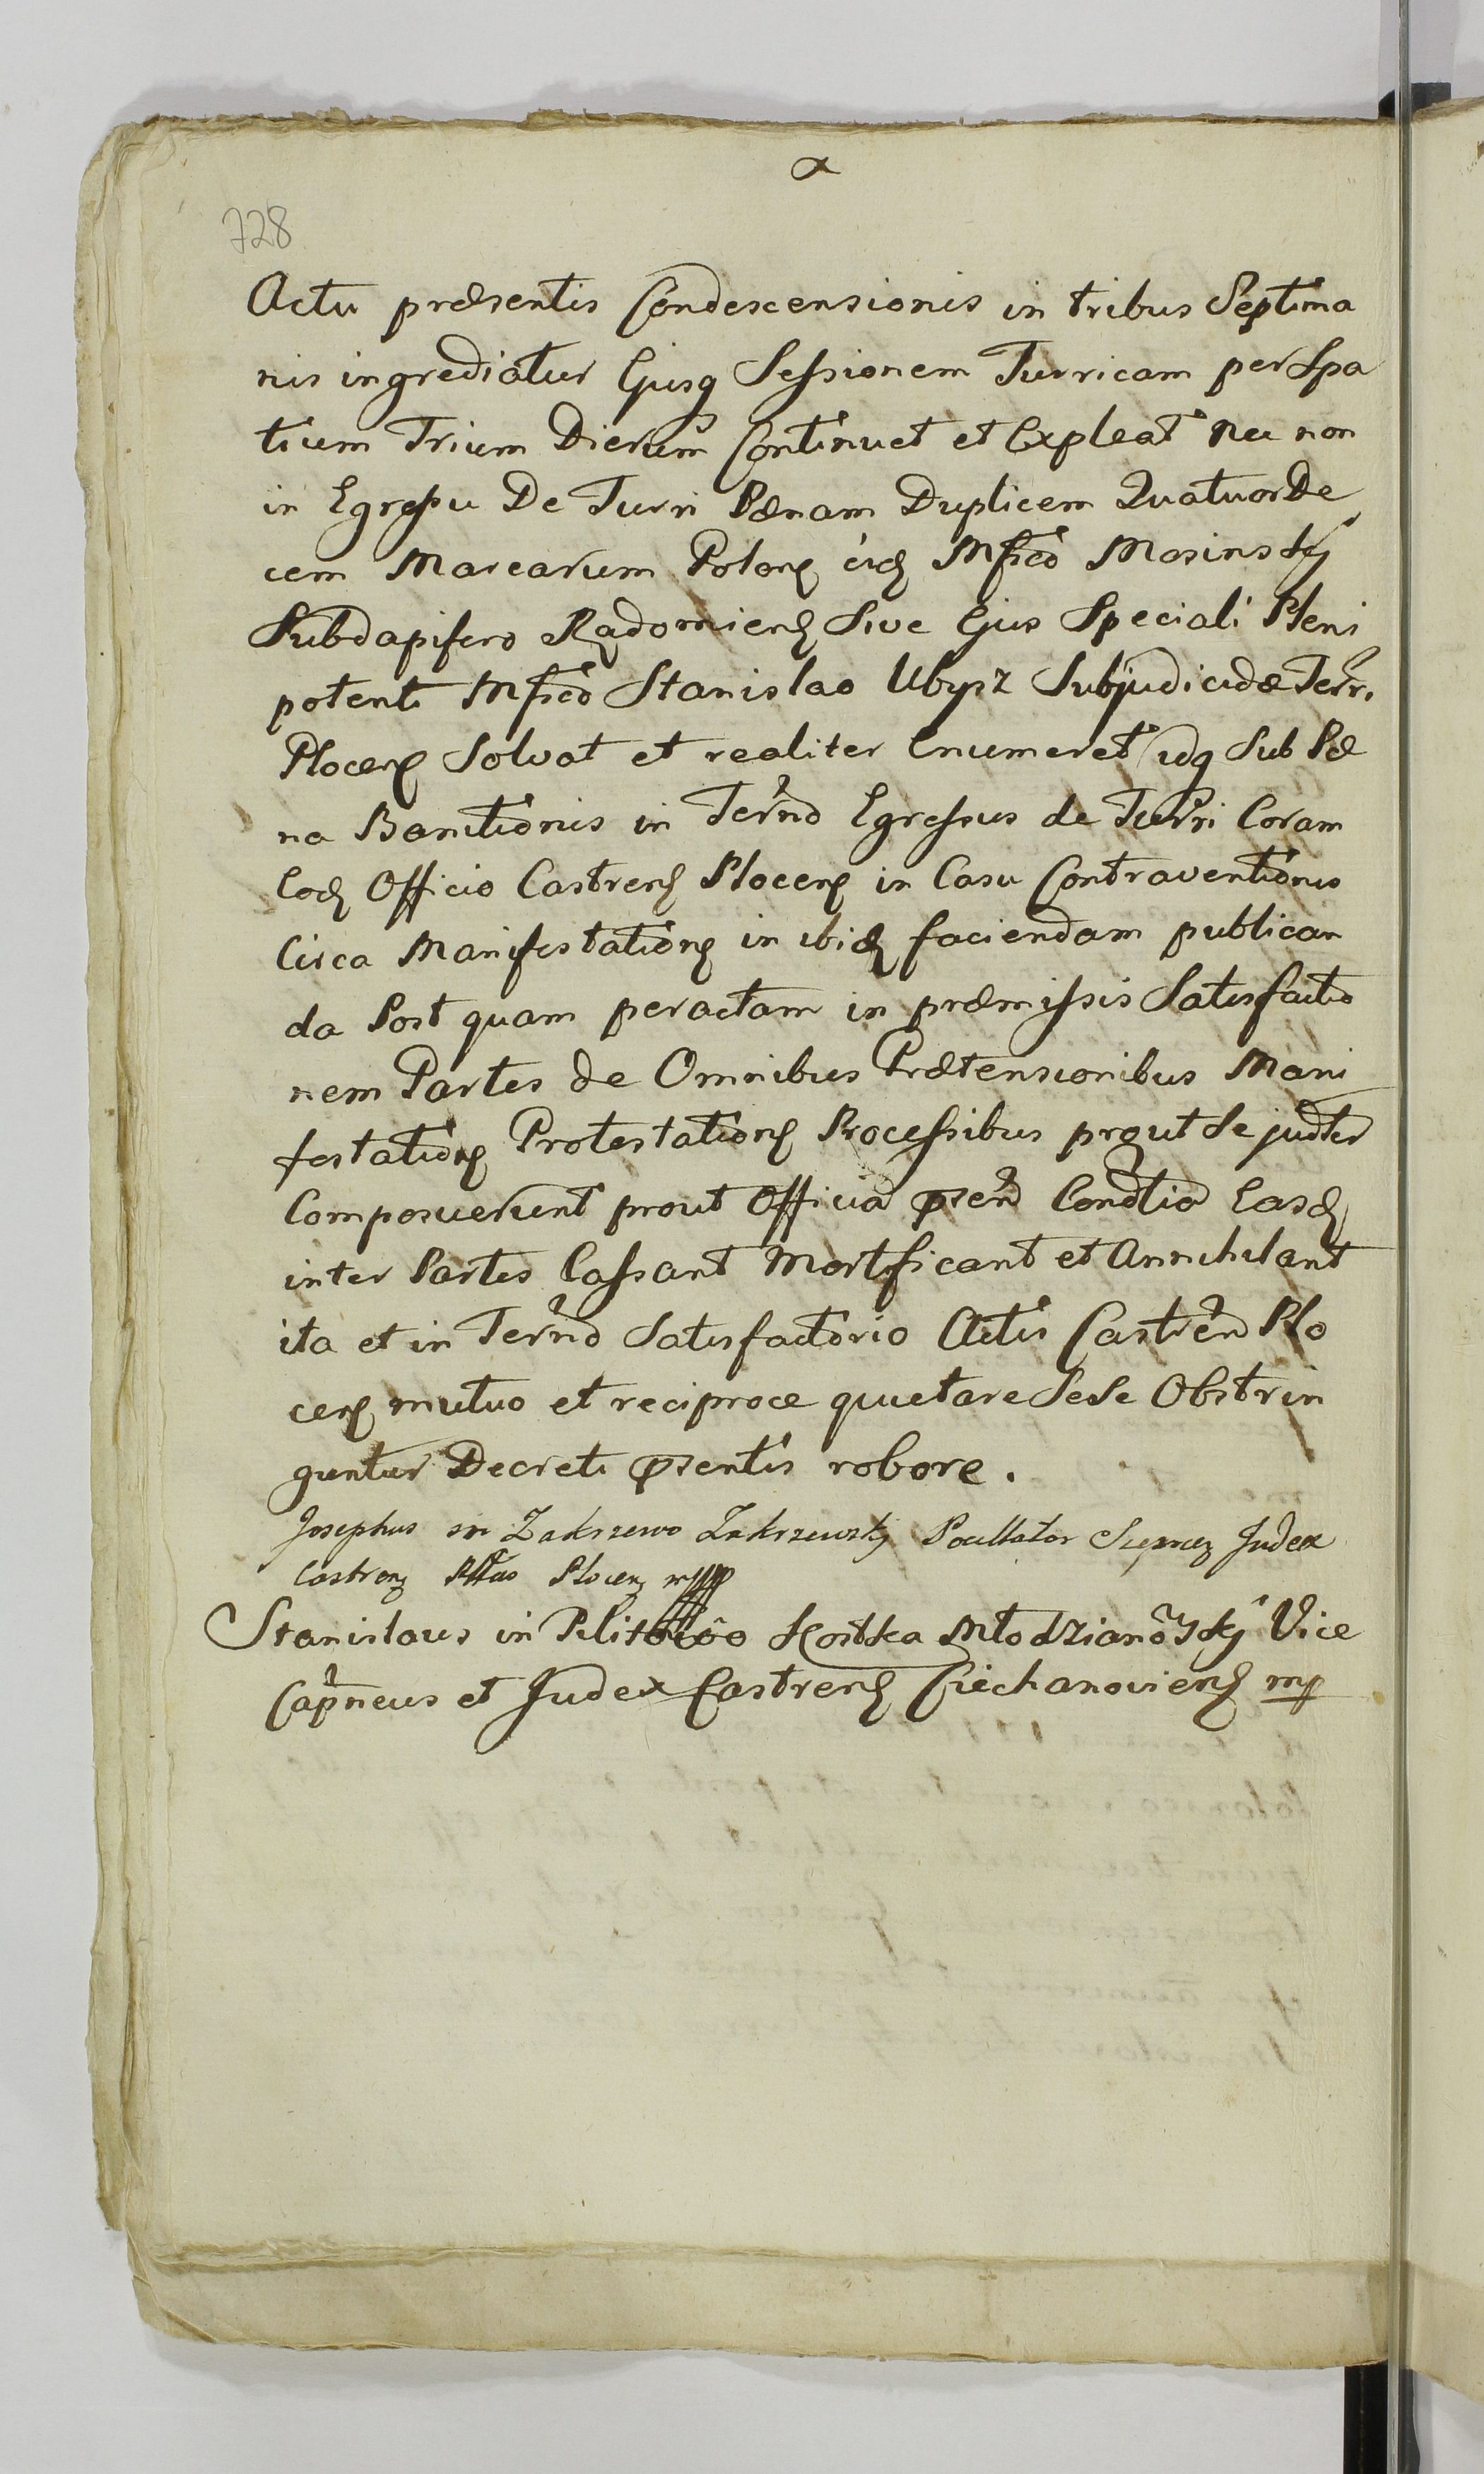 728
Actu præsentis Condescensionis in tribus Septima
nis ingrediatur Ejusq Sessionem Turricam per Spa
tium Trium Dierum Continuet et Expleat nec non
in Egressu De Turri Pænam Duplicem QuatuorDe
cem Marcarum Polonę eidę Mfico Mosinskj
Subdapifero Radomiensę Sive Ejus Speciali Pleni
potenti Mfico Stanislao Ubysz Subjudici dæ Terr.
Plocenę Solvat et realiter Enumeret idq Sub Pæ
na Banitionis in Terno Egressus de Turri Coram
Eodę Officio Castrensę Plocenę in Casu Contraventionis
Circa Manifestationę in ibidę faciendam publican
da Post quam peractam in præmissis Satisfactio
nem Partes de Omnibus Prætensionibus Mani
festationę Protestationę Processibus prout Se
Composuerunt prout Officia Eosdę
inter Partes Cassant Mortificant et Annihilant
ita et in Terno Satisfactorio Actis Castren Plo
cenę mutuo et reciproce quietare Sese Obstrin
guntur Decreti pzentis robore.
Josephus in Zakrzewo Zakrzewskj Pocillator Judex
Castrenę Plocenę mpp
Stanislaus in Kostka Młodzianowskj Vice
Capneus et Judex Castrensę Ciechanoviensę mp